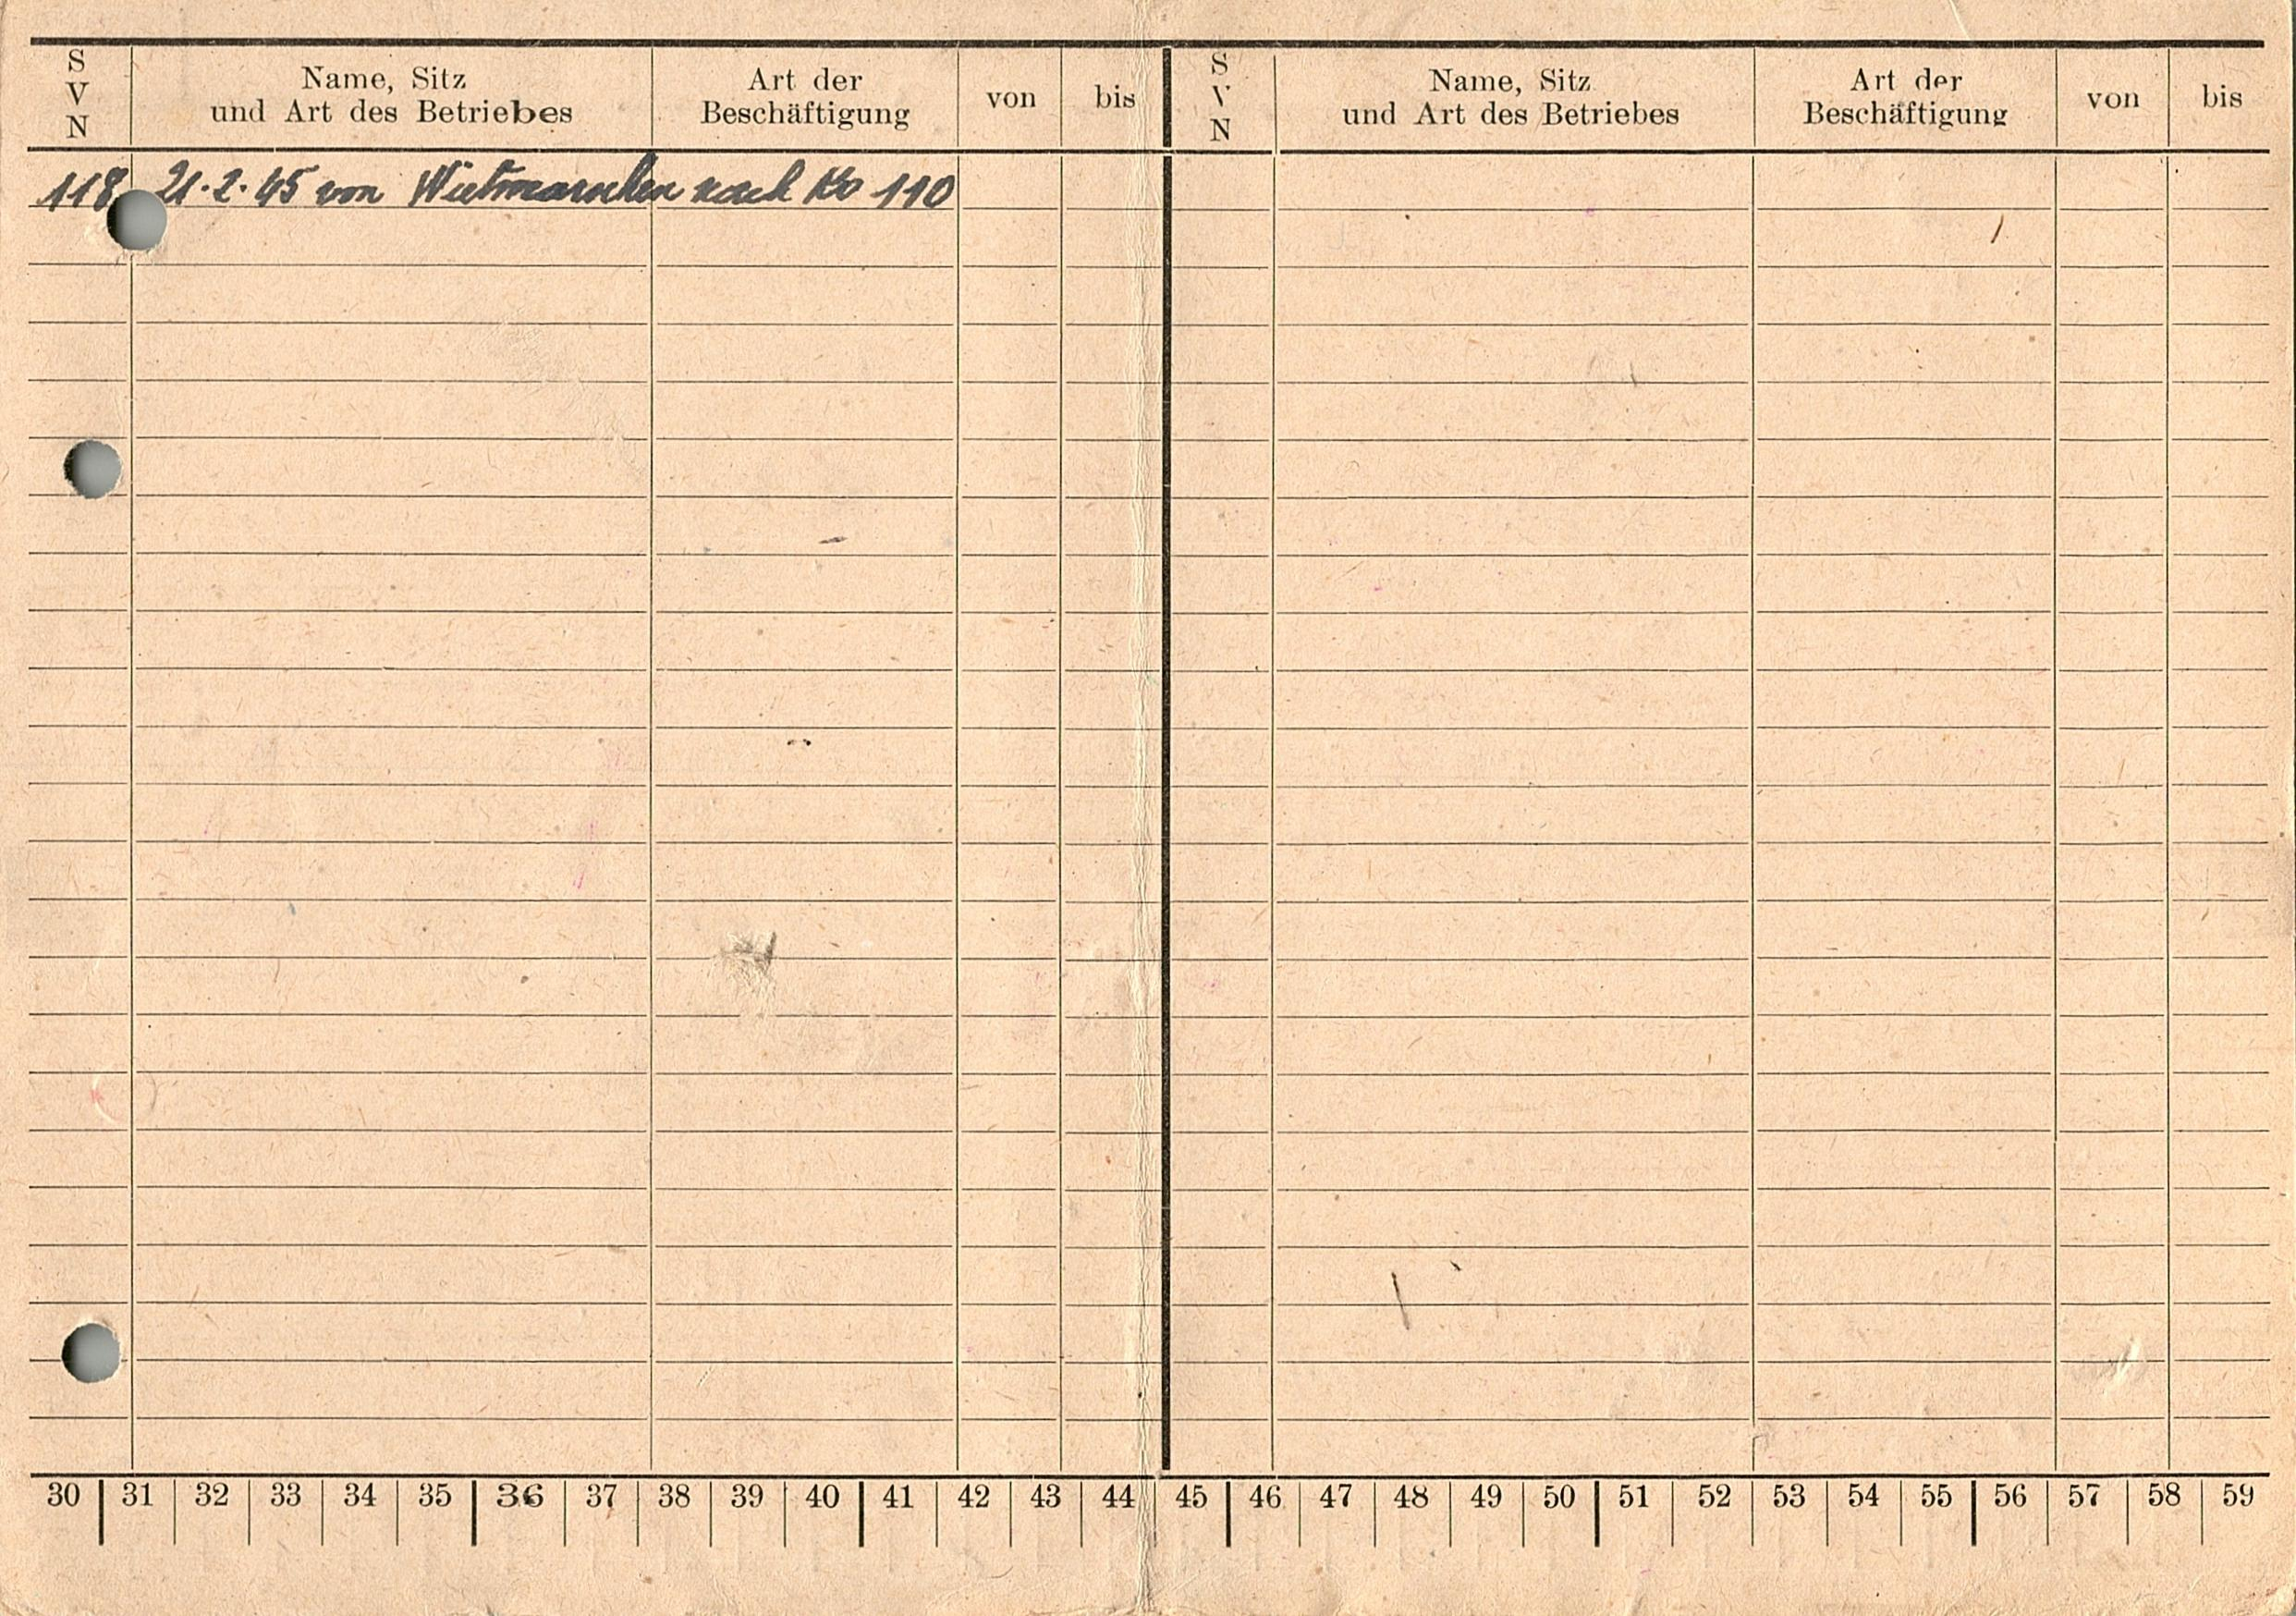 S V N Name, Sitz und Art des Betriebes Art der Beschäftigung von bis S V N Name, Sitz und Art des Betriebes Art der Beschäftigung von bis
118 21.2.45 von Wietmarschen nach Ko 110
30 31 32 33 34 35 36 37 38 39 40 41 42 43 44 45 46 47 48 49 50 51 52 53 54 55 56 57 58 59